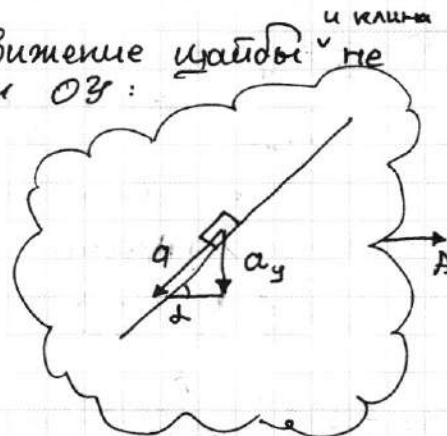 и клина
вижение шайбы ˅ не
и ОУ:
a
a_y
α
A